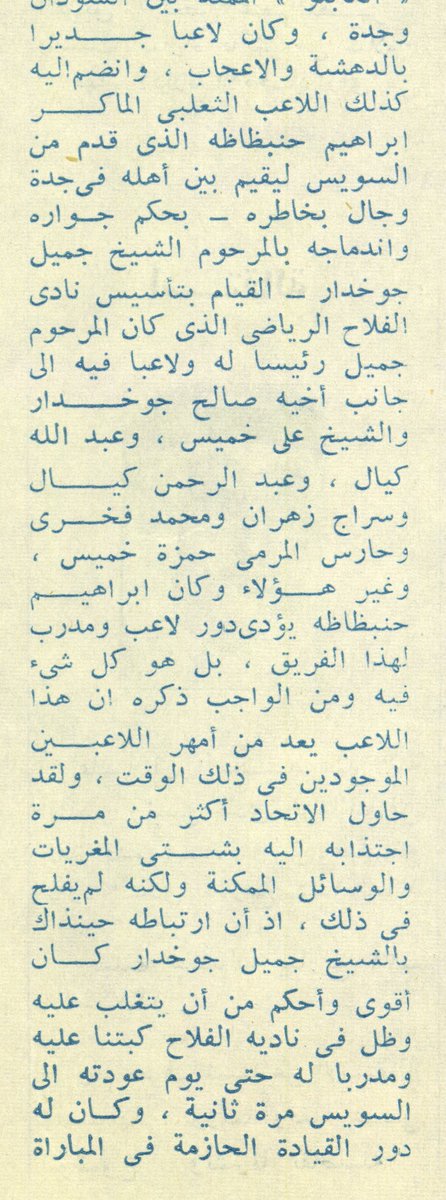 بين السودان
وجدة ، وكان لاعبا جـــديرا
بالدهشة والاعجاب ، وانضم اليه
كذلك اللاعب الثعلبى الماكــر
ابراهيم حنبظاظه الذى قدم من
السويس ليقيم بين أهله فى جدة
وجال بخاطره ــ بحكم جــواره
واندماجه بالمرحوم الشيخ جميل
جوخدار ــ القيام بتأسيس نادى
الفلاح الرياضى الذى كان المرحوم
جميل رئيسا له ولاعبا فيه الى
جانب أخيه صالح جوخــــدار
والشيخ على خميس ، وعبد الله
كيال ، وعبد الرحمن كيـــال
وسراج زهران ومحمد فخــرى
وحارس المرمى حمزة خميس ،
وغير هــؤلاء وكان ابراهيــم
حنبظاظه يؤدى دور لاعب ومدرب
لهذا الفريق ، بل هو كل شىء
فيه ومن الواجب ذكره ان هذا
اللاعب يعد من أمهر اللاعبــين
الموجودين فى ذلك الوقت ، ولقد
حاول الاتحاد أكثر من مــرة
اجتذابه اليه بشـــتى المغريات
والوسائل الممكنة ولكنه لم يفلح
فى ذلك ، اذ أن ارتباطه حينذاك
بالشيخ جميل جوخدار كـــان
أقوى وأحكم من أن يتغلب عليه
وظل فى ناديه الفلاح كبتنا عليه
ومدربا له حتى يوم عودته الى
السويس مرة ثانية ، وكــان له
دور القيادة الحازمة فى المباراة